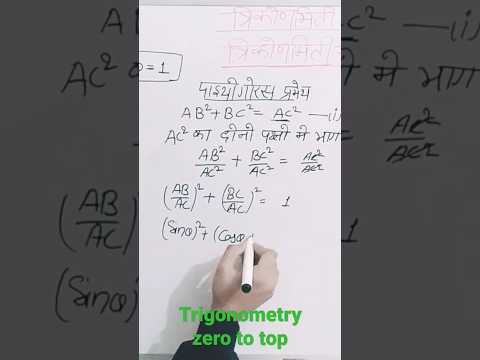 त्रिकोणमिती
त्रिकोणमिती
AC² — (i)
θ = 1
AC² का दोनों पक्षों में भाग
पाइथागोरस प्रमेय
AB² + BC² = AC² — (i)
AC² का दोनो पक्षो मे भाग
AB²/AC² + BC²/AC² = AC²/AC²
(AB/AC)² + (BC/AC)² = 1
(Sinθ)² + (Cosθ
(Sinθ)
Trigonometry
zero to top